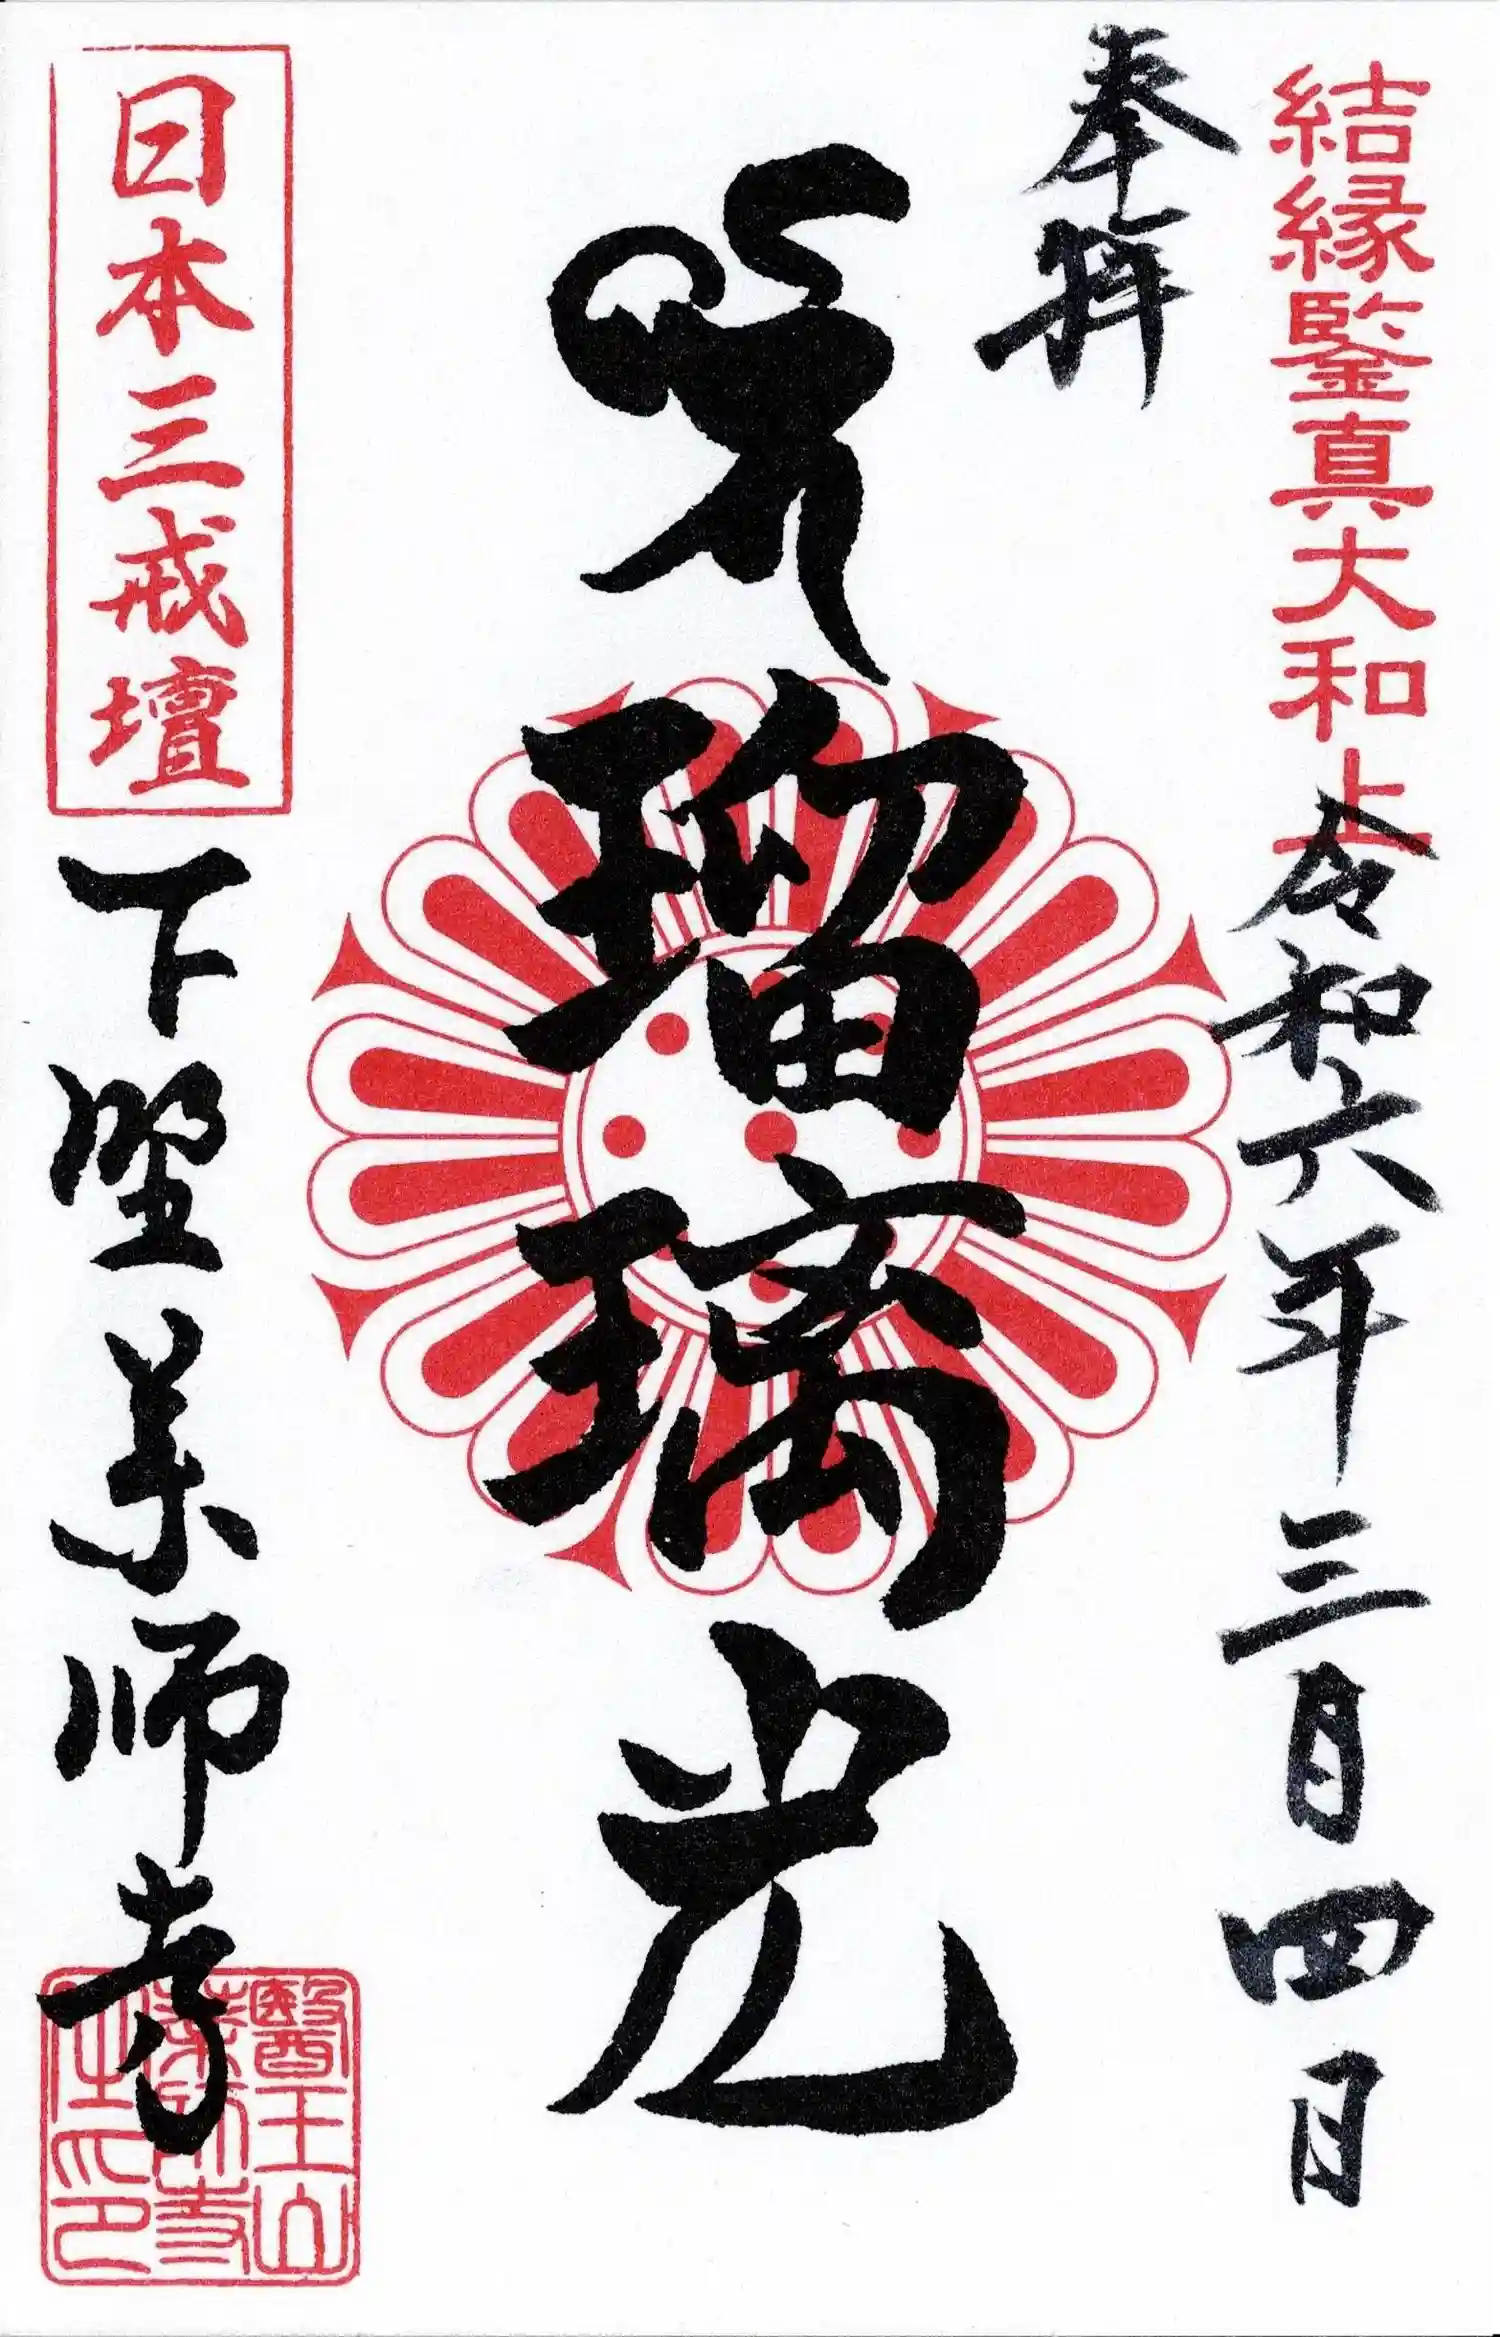 結縁鑒真大和上
奉拝
令和六年三月四日
瑠璃光
日本三戒壇
下野薬師寺
醫王山
薬師寺
之印